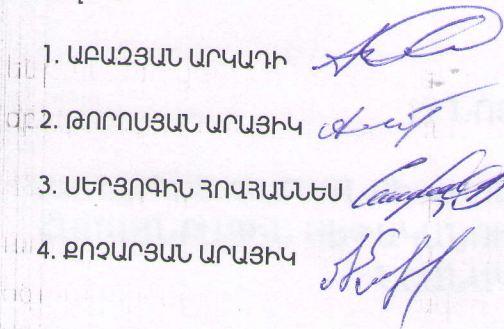 1. ԱԲԱԶՅԱՆ ԱՐԿԱԴԻ
2. ԹՈՐՈՍՅԱՆ ԱՐԱՅԻԿ
3. ՍԵՐՅՈԳԻՆ ՀՈՎՀԱՆՆԵՍ
4. ՔՈՉԱՐՅԱՆ ԱՐԱՅԻԿ